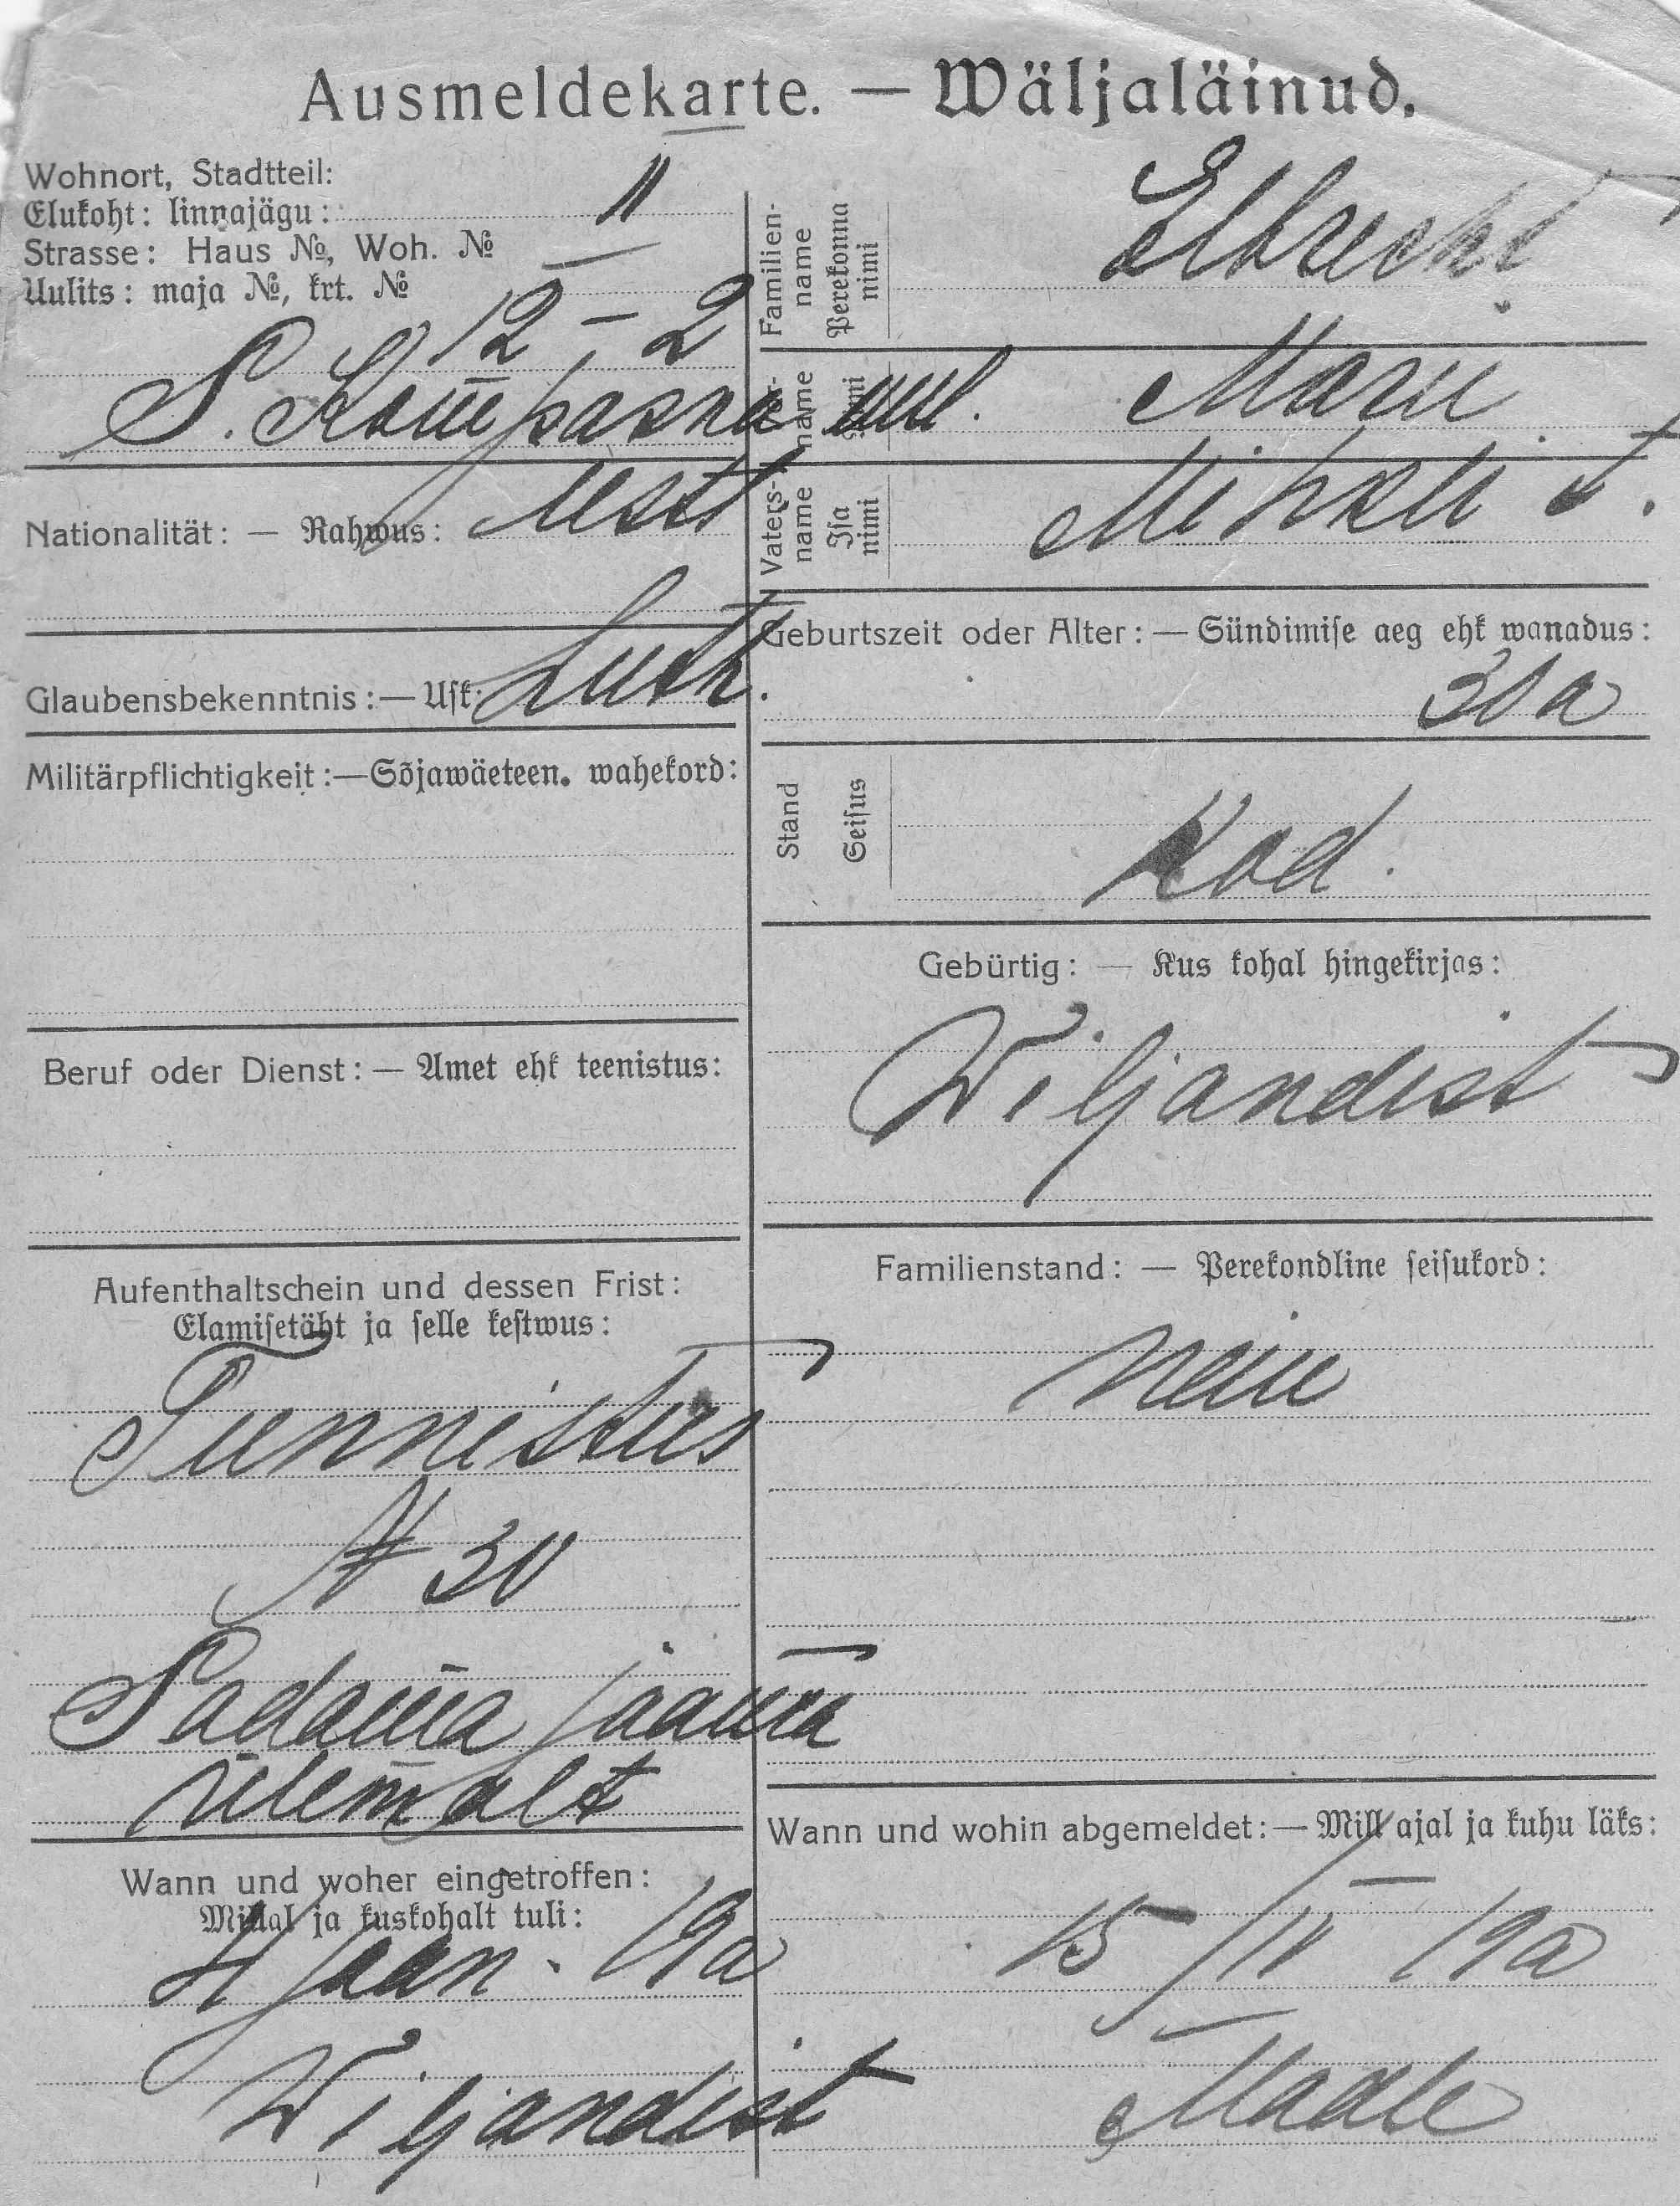 Ausmeldekarte. — Wäljaläinud.
Wohnort, Stadtteil:
Elukoht: linnajägu: II
Strasse: Haus №, Woh. №
Uulits: maja №, krt. №
12 – 2
S. Kompasna uul.
Nationalität: — Rahwus: Eesti
Glaubensbekenntnis: — Usk: Luth.
Militärpflichtigkeit: — Sõjawäeteen. wahekord:
Beruf oder Dienst: — Amet ehk teenistus:
Aufenthaltschein und dessen Frist:
Elamisetäht ja selle kestwus:
Tunnistus
№ 30
Sadama jaama
ülemalt
Wann und woher eingetroffen:
Millal ja kuskohalt tuli:
4 Jaan. 19a
Wiljandist
Familien-
name
Perekonna
nimi
Elbrecht
Vor-
name
nimi
Marie
Vaters-
name
Isa
nimi
Mihkli t.
Geburtszeit oder Alter: — Sündimise aeg ehk wanadus:
Stand
Seisus
Kod.
Gebürtig: — Kus kohal hingekirjas:
Wiljandist
Familienstand: — Perekondline seisukord:
neiu
Wann und wohin abgemeldet: — Mill ajal ja kuhu läks:
15/IV 19a
Maale